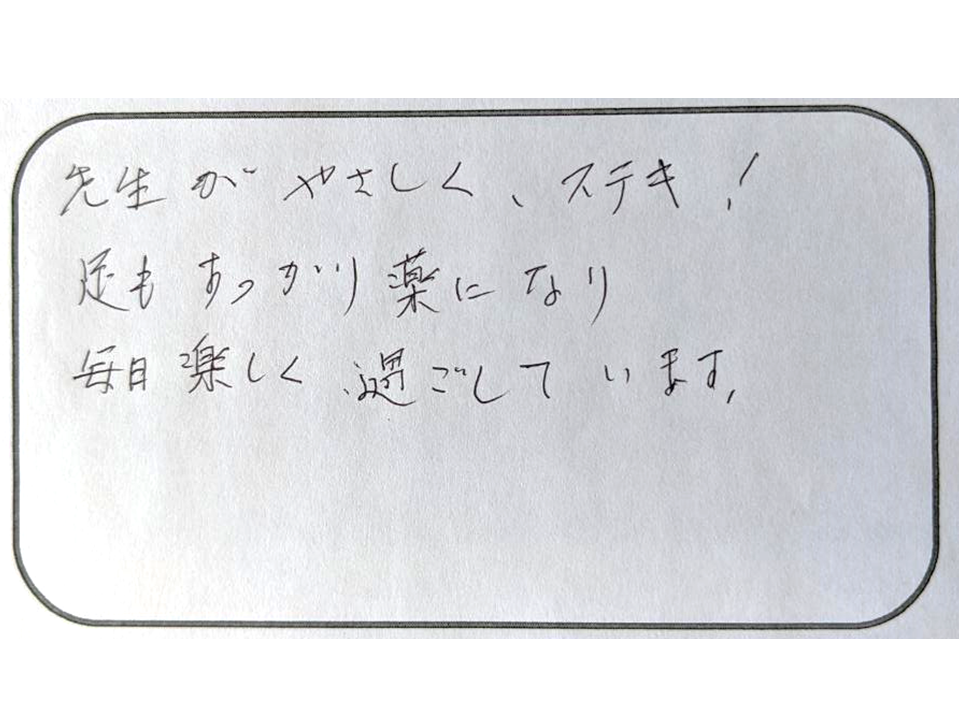 先生がやさしく、ステキ!
足もすっかり薬になり
毎日楽しく過ごしています,